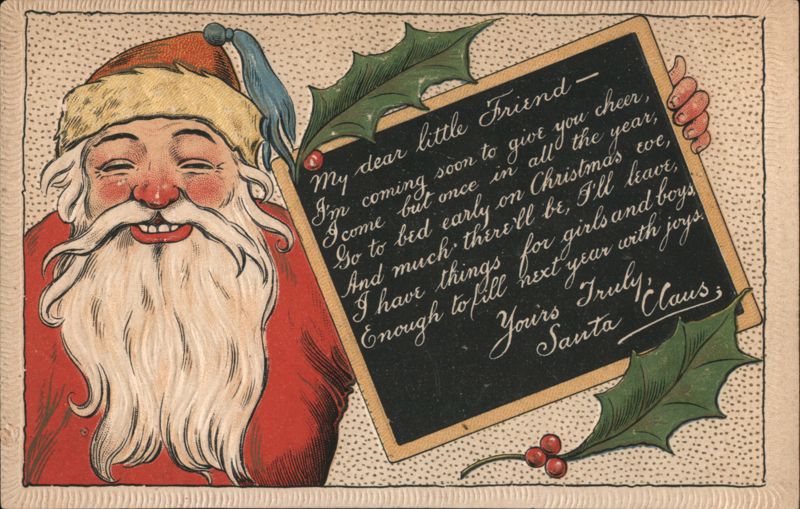 My dear little Friend —
I'm coming soon to give you cheer,
I come but once in all the year,
Go to bed early on Christmas eve,
And much there'll be, I'll leave,
I have things for girls and boys,
Enough to fill next year with joys.
Yours Truly,
Santa Claus;